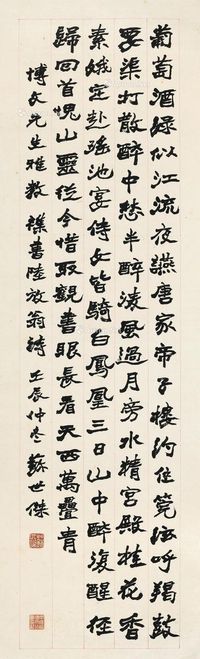 葡萄酒綠似江流夜讌唐家帝子樓約住筦絃呼羯鼓
要渠打散醉中愁半醉淩風過月旁水精宮殿桂花香
素娥定赴瑤池宴侍女皆騎白鳳凰三日山中醉復醒徑
歸回首愧山靈從今惜取觀書眼長看天西萬疊青
博文先生雅教 襍書陸放翁詩 壬辰仲冬 蘇世傑